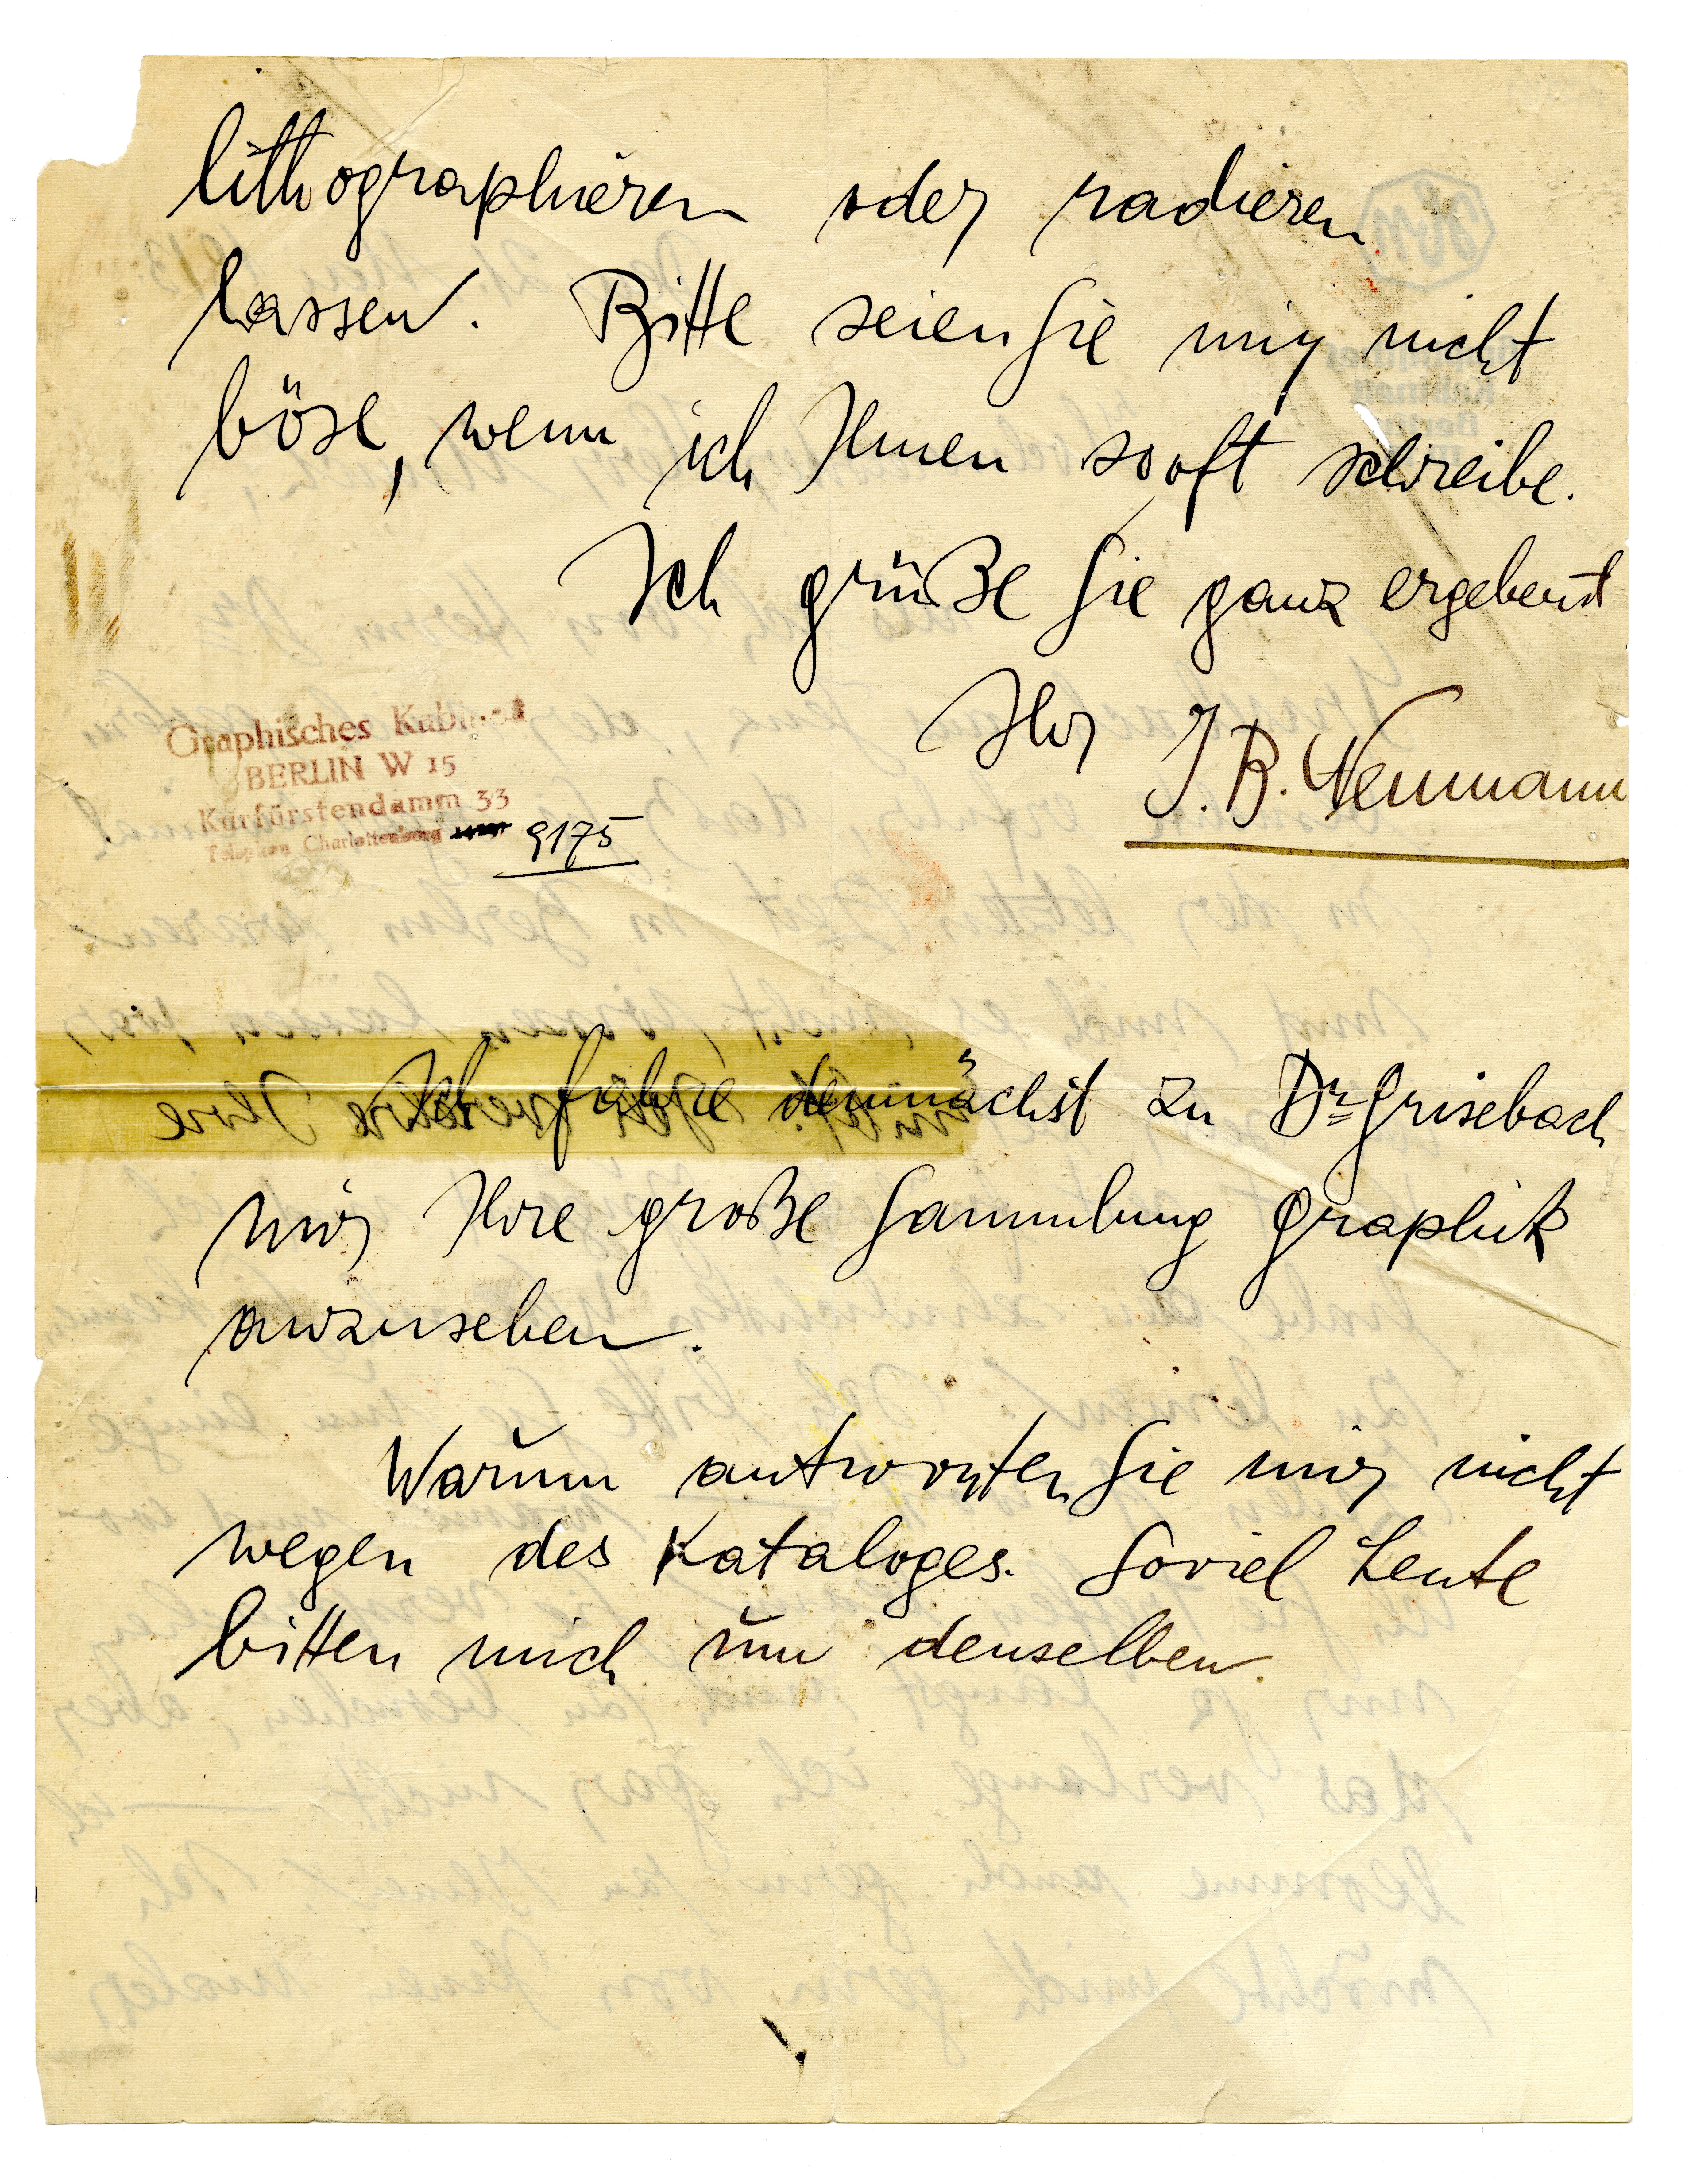 lithographieren oder radieren
lassen. Bitte seien Sie mir nicht
böse, wenn ich Ihnen so oft schreibe.
Ich grüße Sie ganz ergebenst
Ihr J. B. Neumann
Graphisches Kabinet
BERLIN W 15
Kurfürstendamm 33
Telephon Charlottenburg 9175
Ich fahre demnächst zu Dr. Grisebach
mir Ihre große Sammlung Graphik
anzusehen.
Warum antworten Sie mir nicht
wegen des Kataloges. Soviel Leute
bitten mich um denselben.